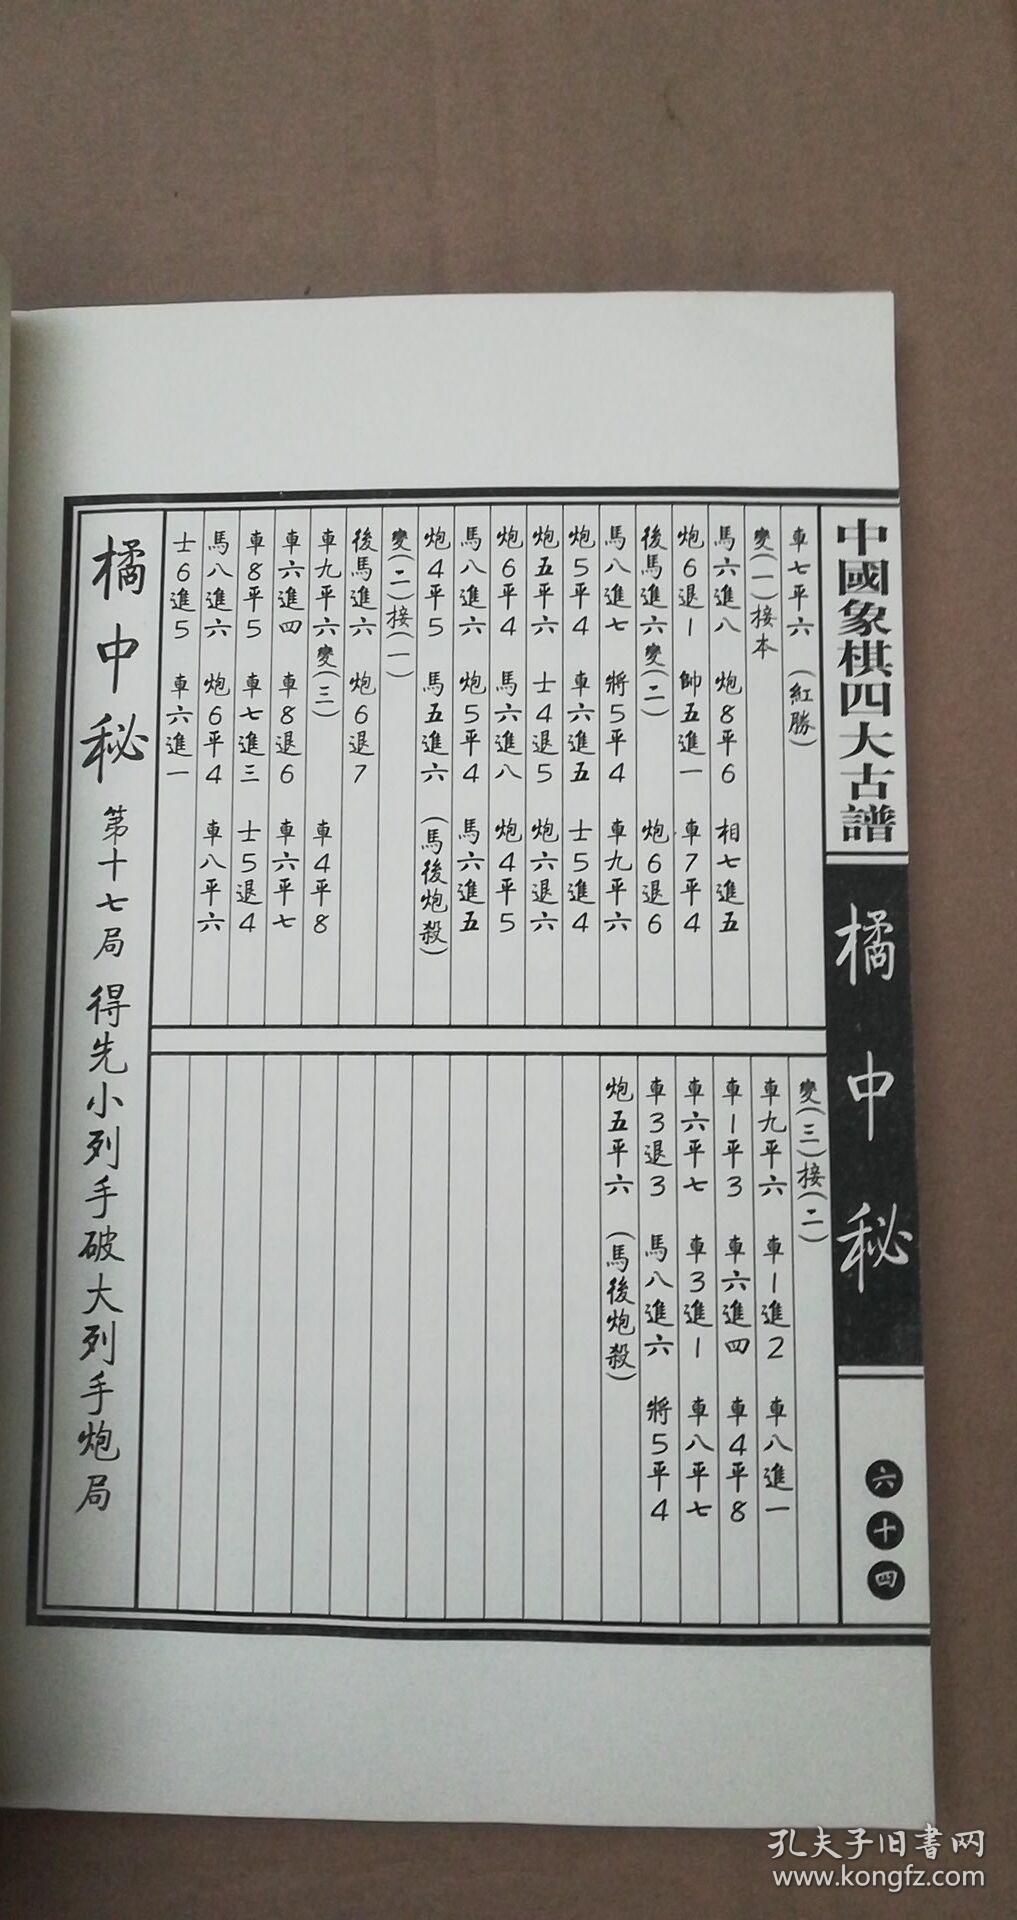 中國象棋四大古譜
橘中秘
六十四
車七平六 (紅勝)
變(一)接本
馬六進八 炮8平6 相七進五
炮6退1 帥五進一 車7平4
後馬進六變(二) 炮6退6
馬八進七 將5平4 車九平六
炮5平4 車六進五 士5進4
炮五平六 士4退5 炮六退六
炮6平4 馬六進八 炮4平5
馬八進六 炮5平4 馬六進五
炮4平5 馬五進六 (馬後炮殺)
變(二)接(一)
後馬進六 炮6退7
車九平六變(三) 車4平8
車六進四 車8退6 車六平七
車8平5 車七進三 士5退4
馬八進六 炮6平4 車八平六
士6進5 車六進一
變(三)接(二)
車九平六 車1進2 車八進一
車1平3 車六進四 車4平8
車六平七 車3進1 車八平七
車3退3 馬八進六 將5平4
炮五平六 (馬後炮殺)
橘中秘 第十七局 得先小列手破大列手炮局
孔夫子旧书网
www.kongfz.com